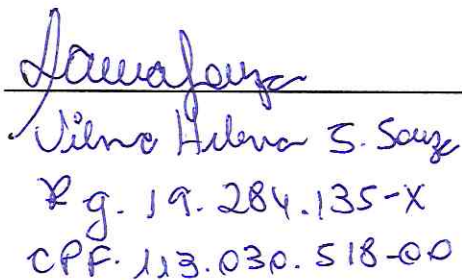 Vilma Helena S. Souza
Rg. 19.284.135-X
CPF. 113.030.518-00